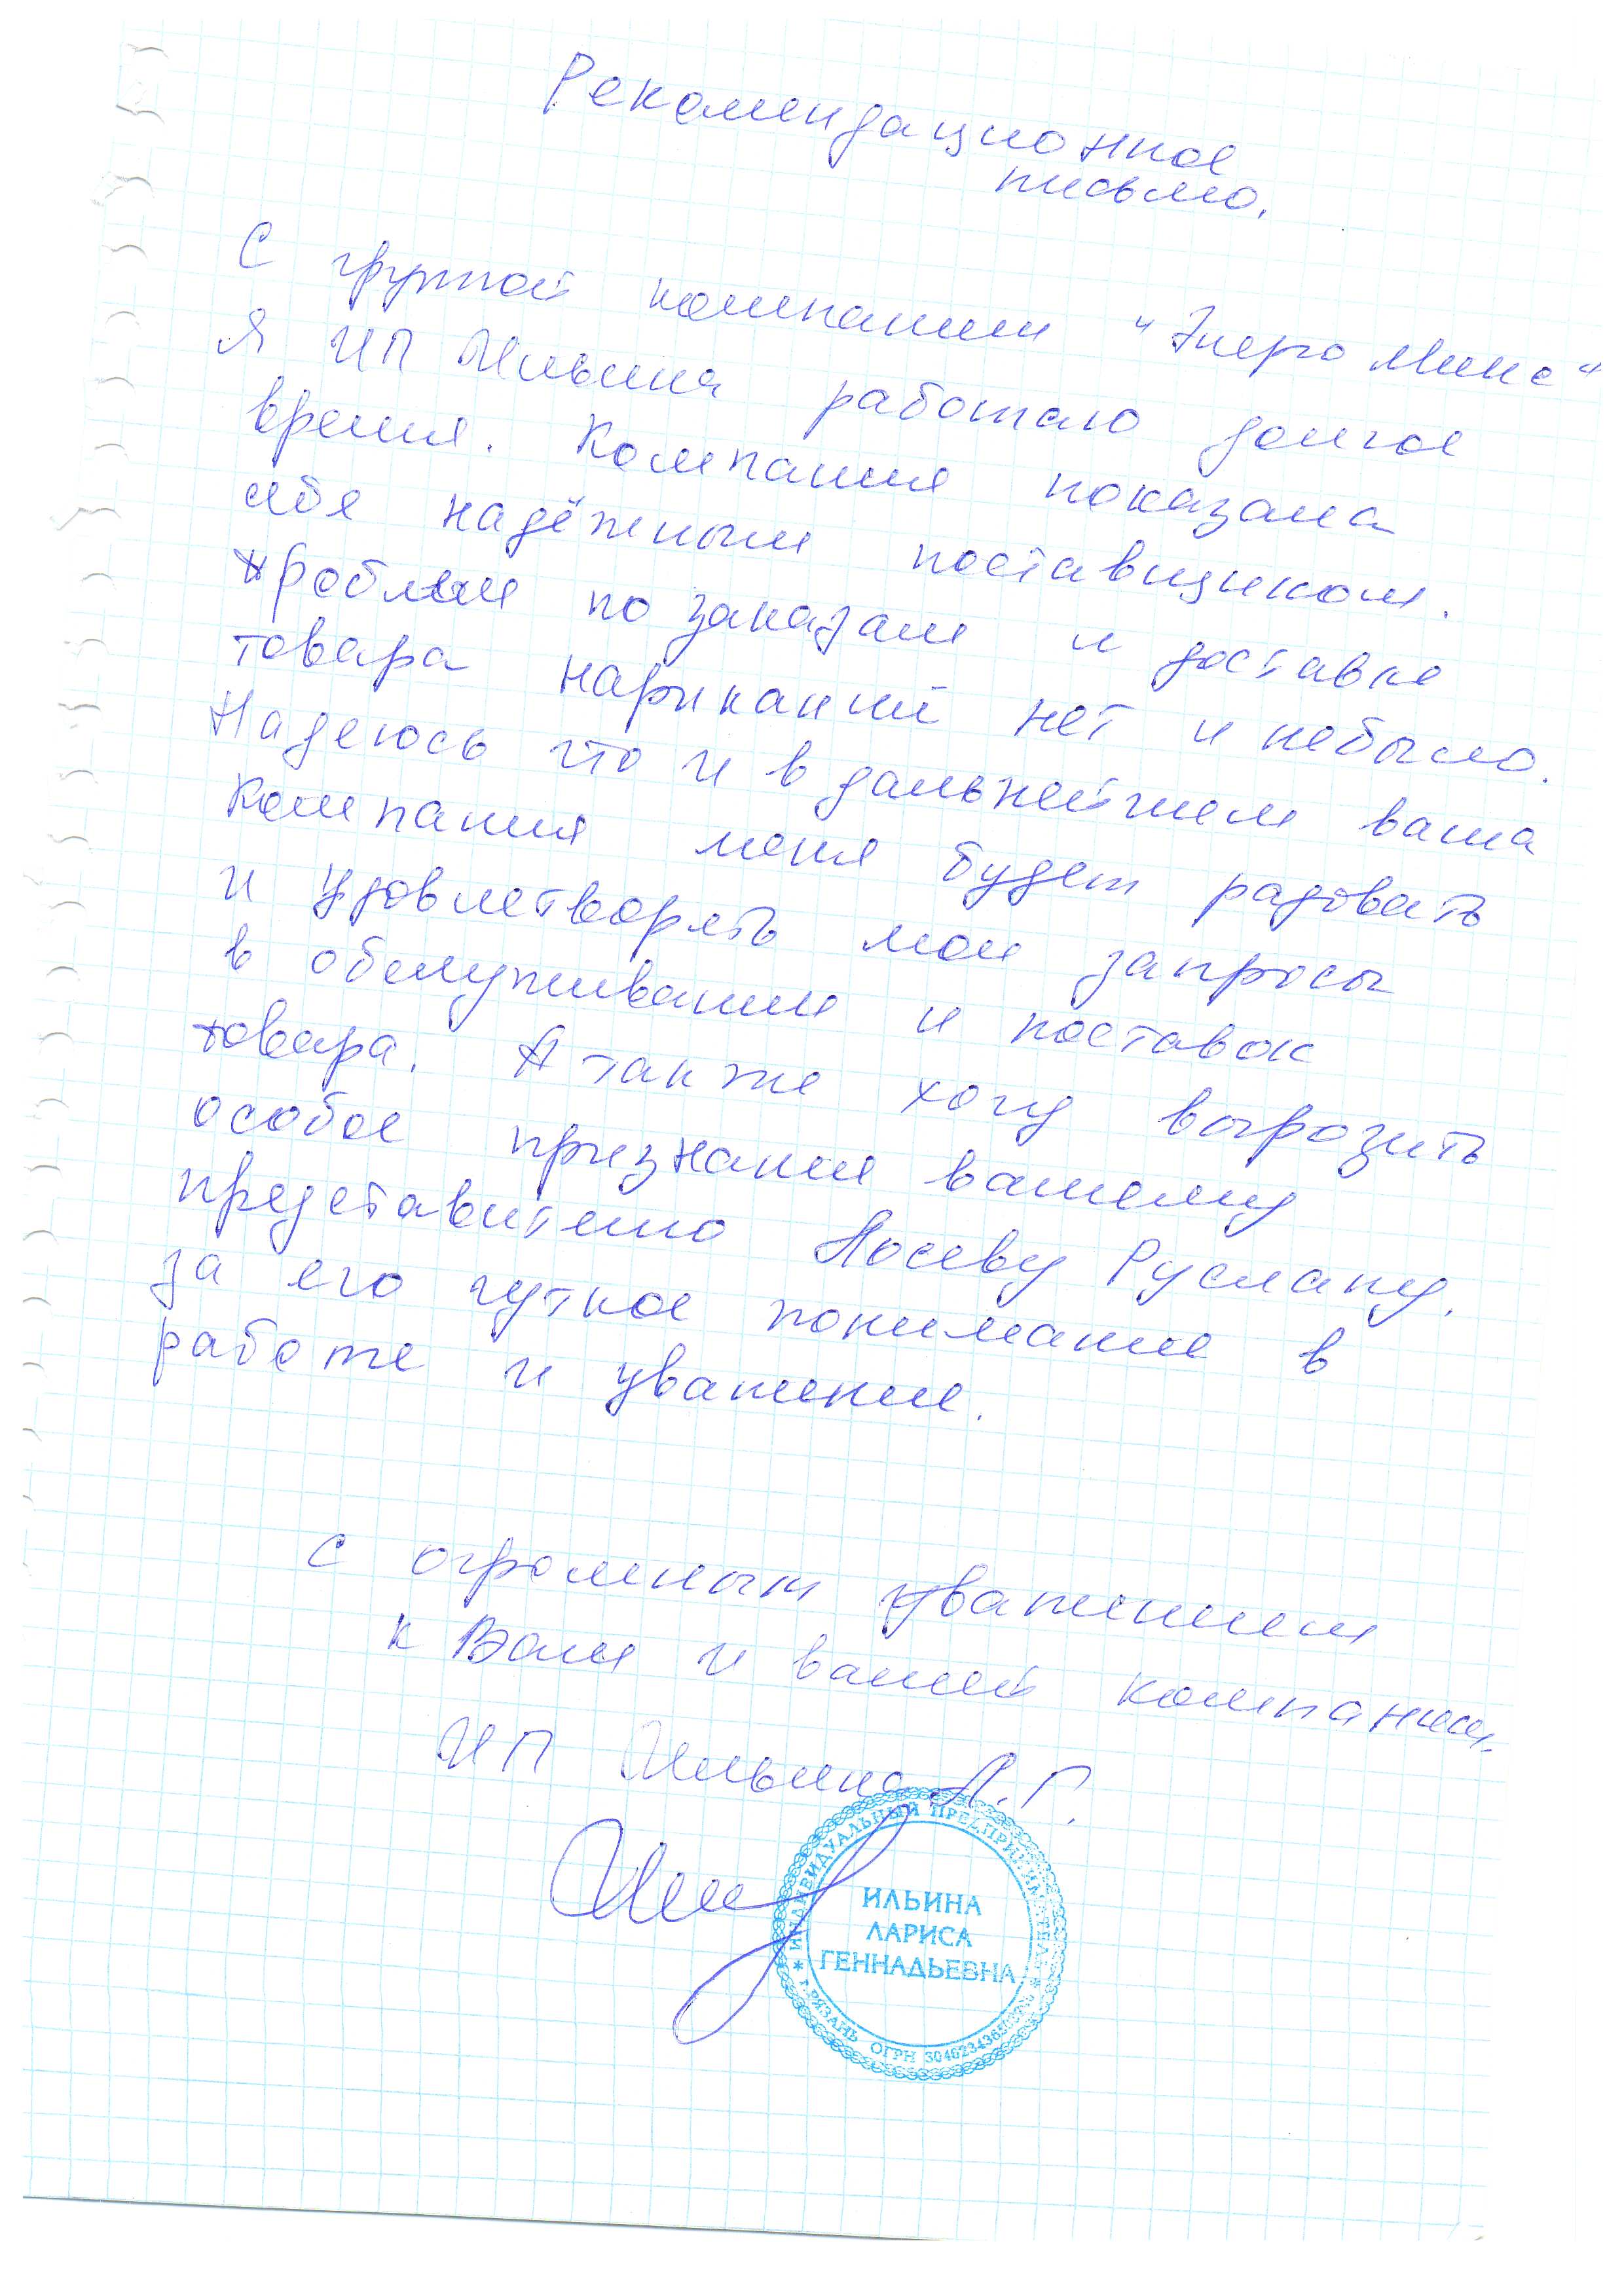 Рекомендационное
письмо.
С группой компании "Энерго Микс"
Я ИП Ильина работаю долгое
время. Компания показала
себя надёжным поставщиком.
проблем по заказам и доставке
товара нариканий нет и небыло.
Надеюсь что и в дальнейшем ваша
Компания меня будет радовать
и удовлетворять мои запросы
в обслуживании и поставок
товара. А так же хочу вырозить
особое признание вашему
представителю Руслану.
за его чуткое понимание в
работе и уважение.
С огромным уважением
к Вам и вашей компании.
ИП Ильина Л.Г.
ИНДИВИДУАЛЬНЫЙ ПРЕДПРИНИМАТЕЛЬ
ИЛЬИНА
ЛАРИСА
ГЕННАДЬЕВНА
г. РЯЗАНЬ ОГРН